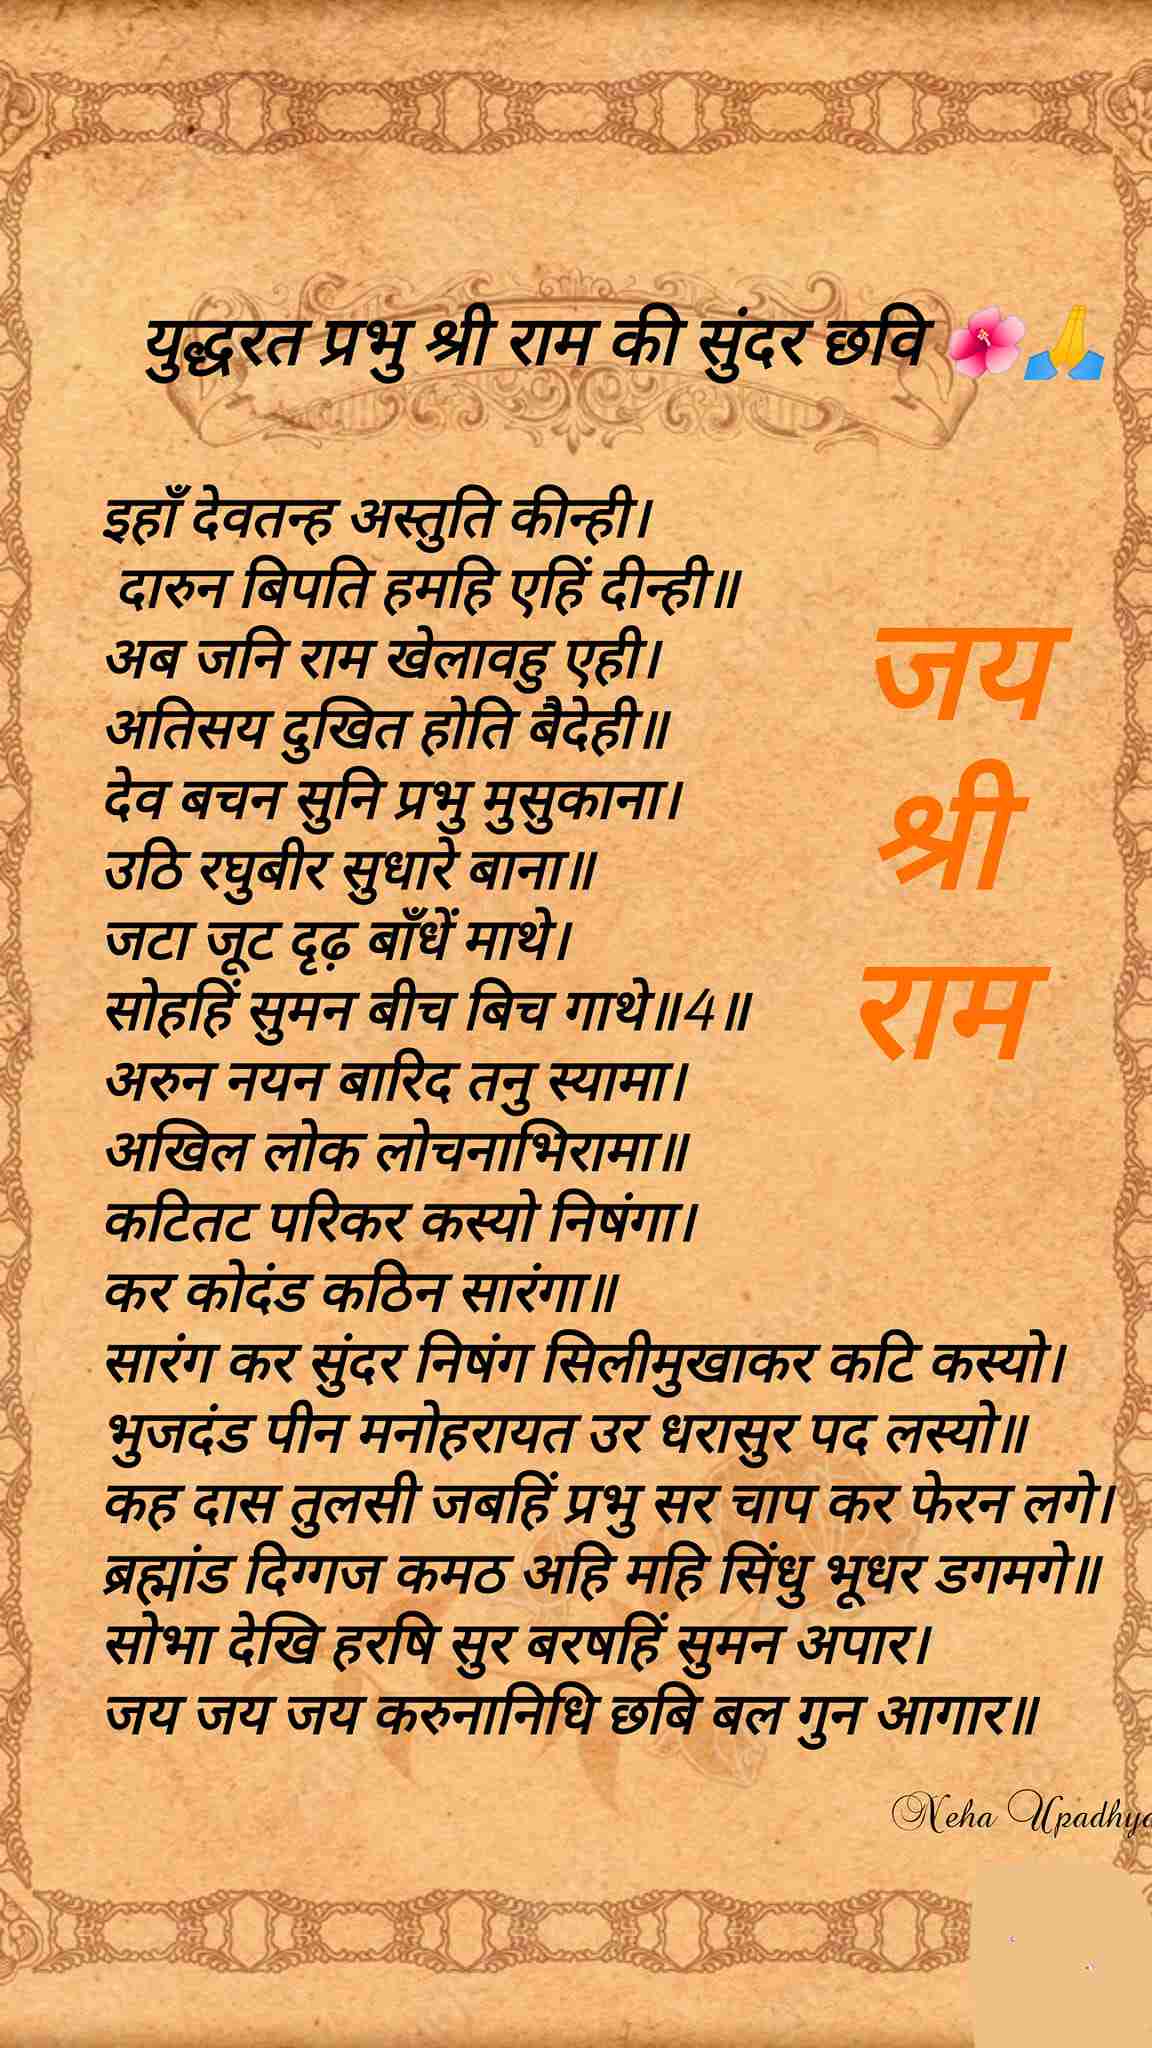 युद्धरत प्रभु श्री राम की सुंदर छवि 🌺🙏
इहाँ देवतन्ह अस्तुति कीन्ही।
दारुन बिपति हमहि एहिं दीन्ही॥
अब जनि राम खेलावहु एही।
अतिसय दुखित होति बैदेही॥
देव बचन सुनि प्रभु मुसुकाना।
उठि रघुबीर सुधारे बाना॥
जटा जूट दृढ़ बाँधें माथे।
सोहहिं सुमन बीच बिच गाथे॥4॥
अरुन नयन बारिद तनु स्यामा।
अखिल लोक लोचनाभिरामा॥
कटितट परिकर कस्यो निषंगा।
कर कोदंड कठिन सारंगा॥
सारंग कर सुंदर निषंग सिलीमुखाकर कटि कस्यो।
भुजदंड पीन मनोहरायत उर धरासुर पद लस्यो॥
कह दास तुलसी जबहिं प्रभु सर चाप कर फेरन लगे।
ब्रह्मांड दिग्गज कमठ अहि महि सिंधु भूधर डगमगे॥
सोभा देखि हरषि सुर बरषहिं सुमन अपार।
जय जय जय करुनानिधि छबि बल गुन आगार॥
जय
श्री
राम
Neha